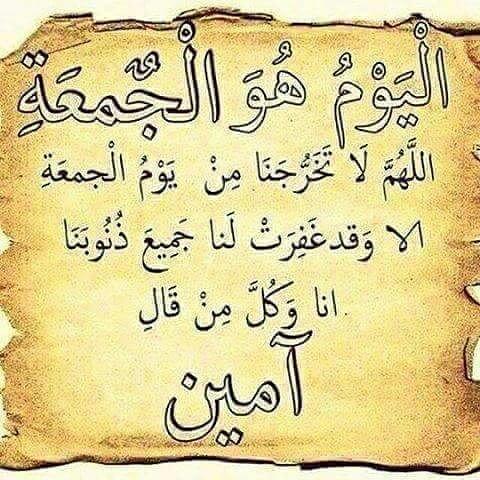 الْيَوْمُ هُوَ الْجٌمعَةِ
اللَّهُمَّ لَا تَخَرُّجَنَا مِنْ يَوْمُ الْجمعَةِ
الا وَقدغَفِرَتْ لَنا جَمِيعَ ذُنُوبَنَا
انا وَكُلَّ مِنْ قَالِ
آمين